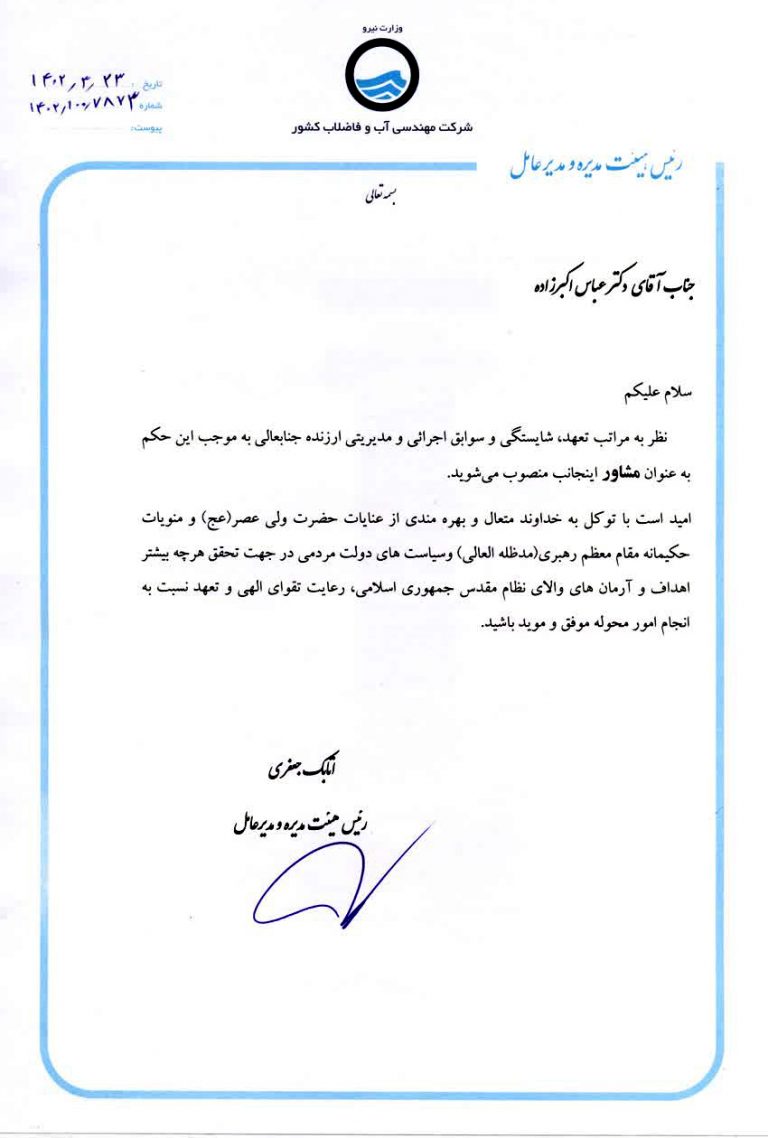 وزارت نیرو
شرکت مهندسی آب و فاضلاب کشور
تاریخ: ۱۴۰۲/۳/۲۳
شماره: ۱۴۰۲/۱۰۰/۷۸۷۳
پیوست:
رئیس هیئت مدیره و مدیرعامل
بسمه تعالی
جناب آقای دکتر عباس اکبرزاده
سلام علیکم
نظر به مراتب تعهد، شایستگی و سوابق اجرائی و مدیریتی ارزنده جنابعالی به موجب این حکم
به عنوان مشاور اینجانب منصوب می‌شوید.
امید است با توکل به خداوند متعال و بهره مندی از عنایات حضرت ولی عصر(عج) و منویات
حکیمانه مقام معظم رهبری(مدظله العالی) وسیاست های دولت مردمی در جهت تحقق هرچه بیشتر
اهداف و آرمان های والای نظام مقدس جمهوری اسلامی، رعایت تقوای الهی و تعهد نسبت به
انجام امور محوله موفق و موید باشید.
اتابک جعفری
رئیس هیئت مدیره و مدیرعامل